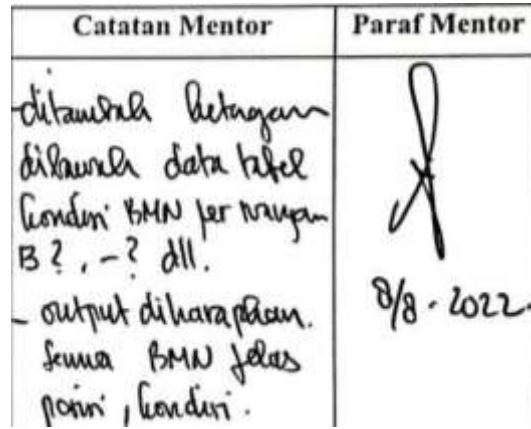 Catatan Mentor
Paraf Mentor
- ditambah
dibawah data tabel
kondisi BMN per ruangan
B ? , - ? dll.
- output diharapkan.
semua BMN jelas
posisi, kondisi.
8/8 - 2022.